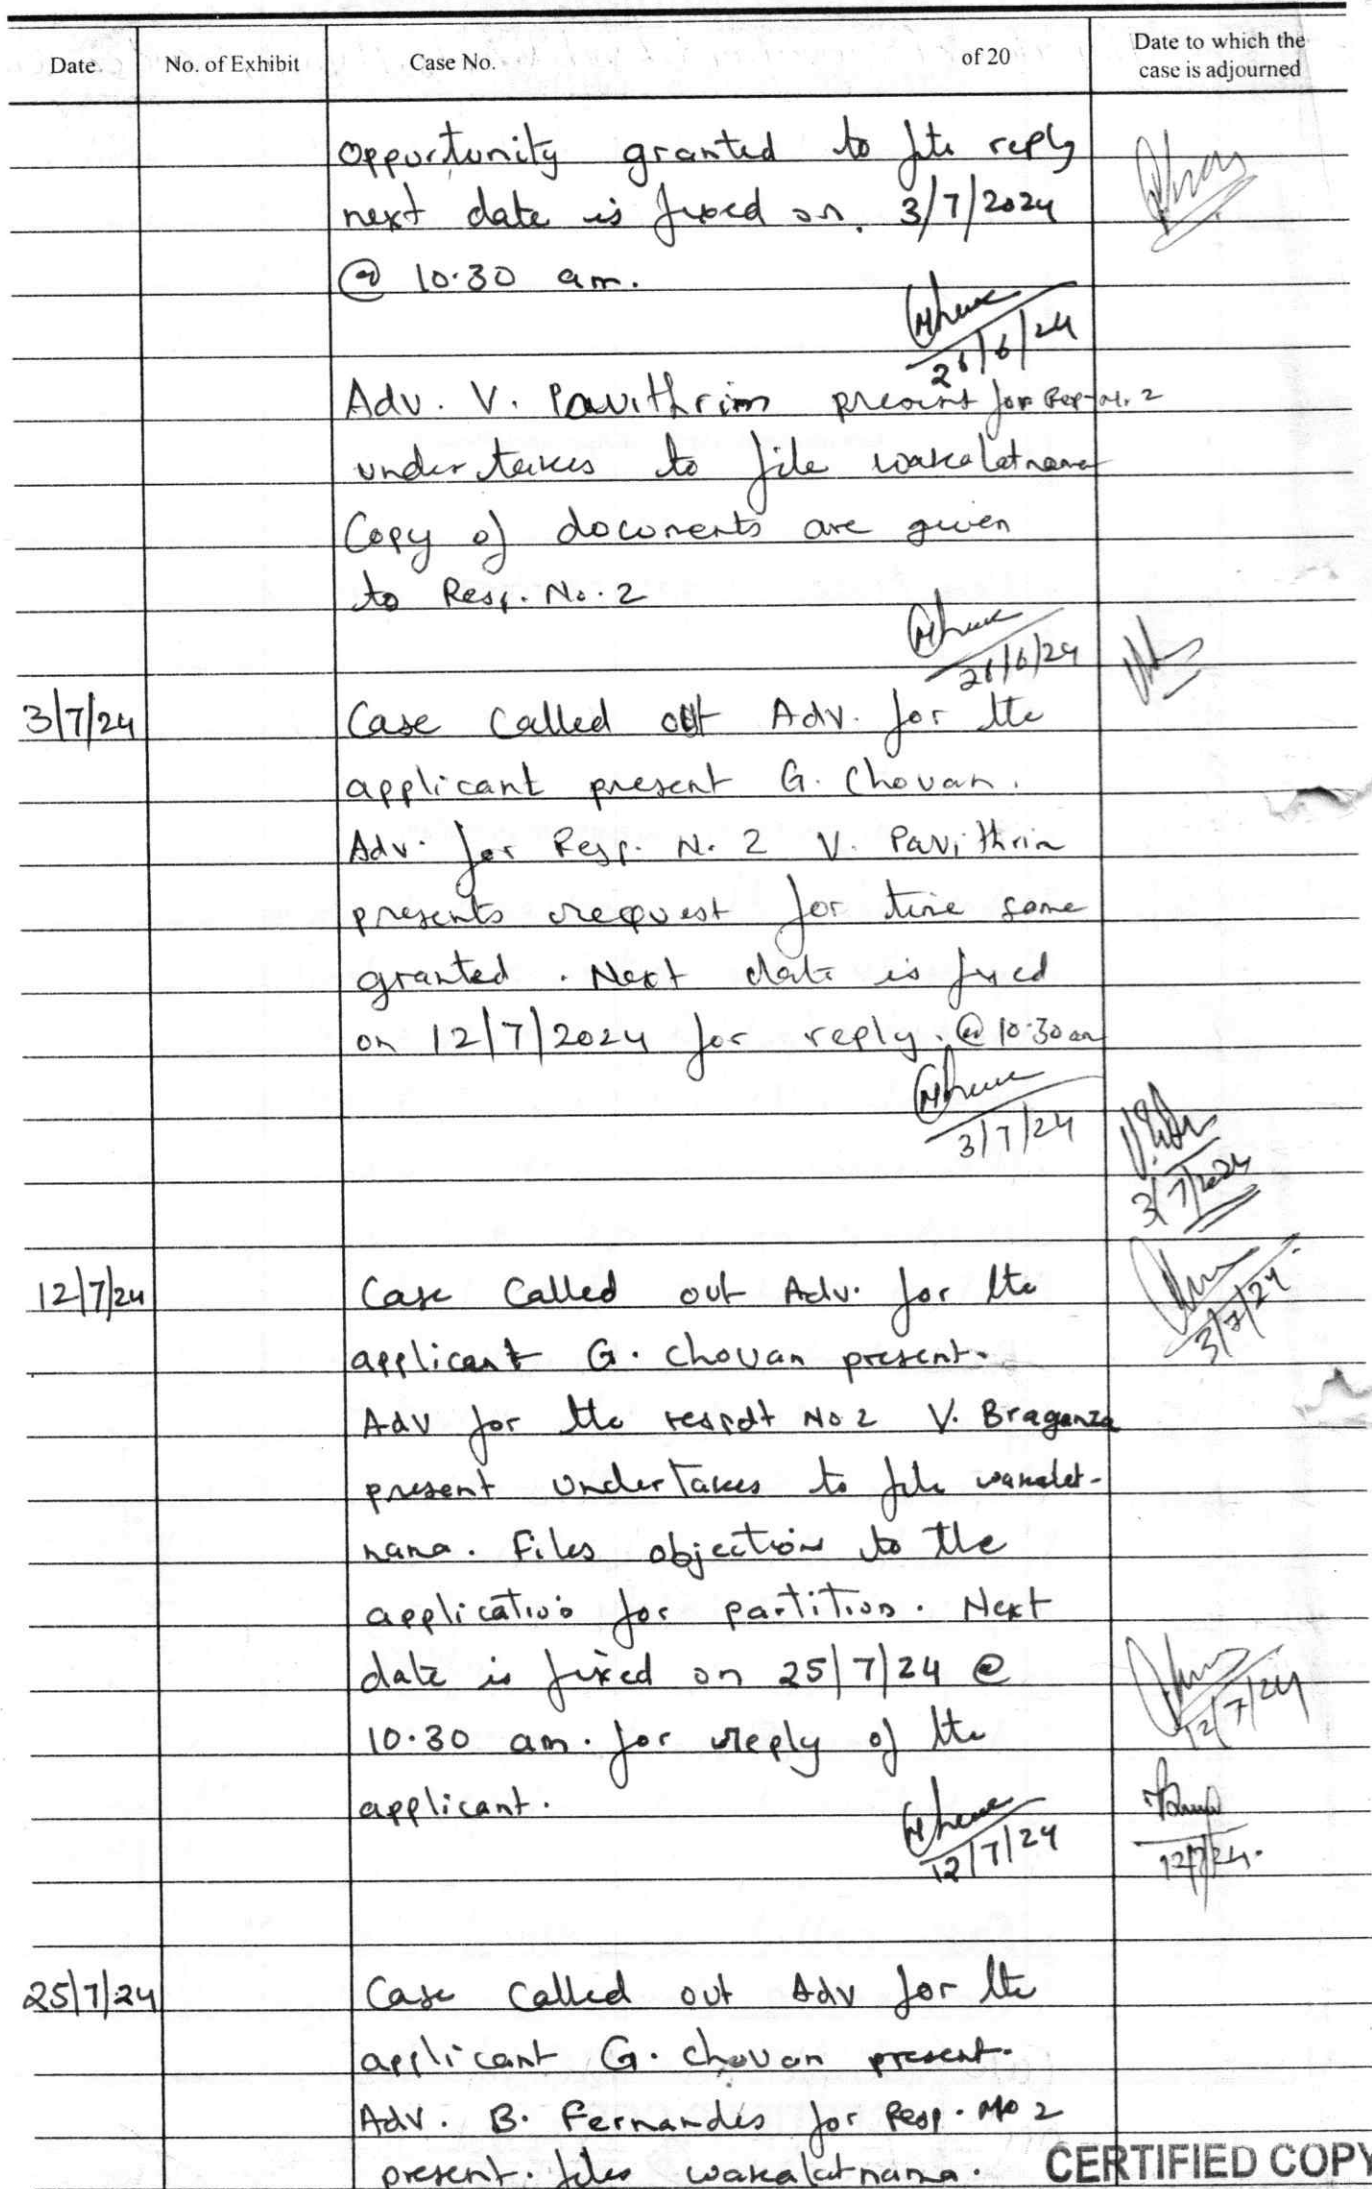 Date. No. of Exhibit Case No. of 20 Date to which the
case is adjourned
opportunity granted to file reply
next date is fixed on. 3/7/2024
@ 10.30 am.
26/6/24
Adv. V. Pavithrin present for Resp. No. 2
undertakes to file wakalatnama
Copy of documents are given
to Resp. No. 2
26/6/24
3/7/24 Case called out Adv. for the
applicant present G. Chovan.
Adv. for Resp. N. 2 V. Pavithrin
presents request for time same
granted. Next date is fixed
on 12/7/2024 for reply. @ 10.30 am
3/7/24
3/7/2024
3/7/24
12/7/24 Case called out Adv. for the
applicant G. Chovan present.
Adv for the respdt No 2 V. Braganza
present undertakes to file wakalat-
nama. Files objection to the
application for partition. Next
date is fixed on 25/7/24 @
10.30 am. for reply of the
12/7/24
applicant.
12/7/24
12/7/24.
25/7/24 Case called out Adv for the
applicant G. Chovan present.
Adv. B. Fernandes for Resp. No 2
present. files wakalatnama.
CERTIFIED COPY